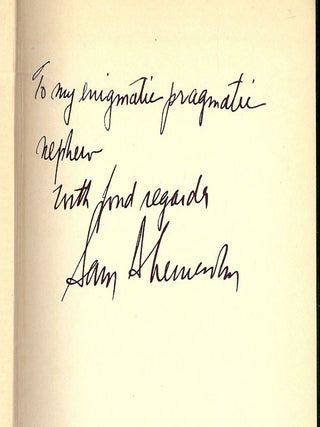 To my enigmatic pragmatic
nephew
with fond regards
Sam